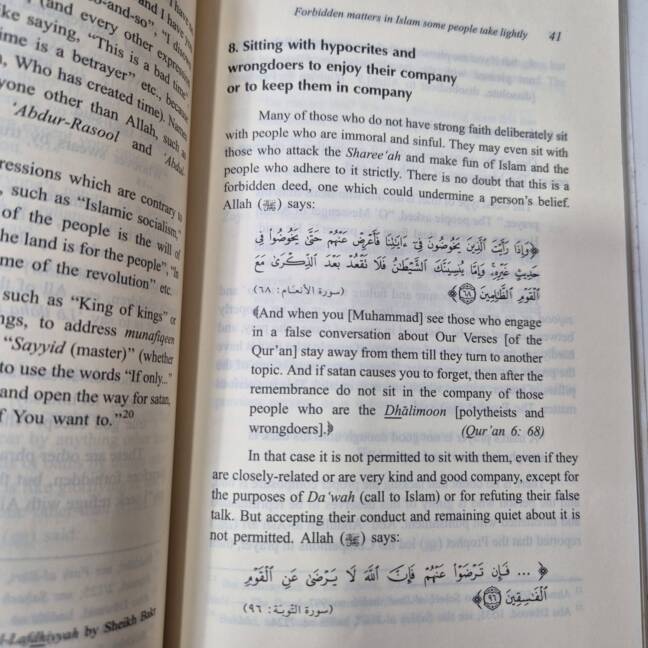 -so-and-so", and I have
(and every other expression
like saying, "This is a bad time"
time is a betrayer" etc., because
h, Who has created time). Names
yone other than Allah, such as
'Abdur-Rasool and 'Abdul-
ressions which are contrary to
, such as "Islamic socialism,"
of the people is the will of
he land is for the people", "In
me of the revolution" etc.
such as "King of kings" or
ngs, to address munafiqeen
"Sayyid (master)" (whether
to use the words "If only..."
and open the way for satan,
f You want to."20
l-Lafdhiyyah by Sheikh Bakr
Forbidden matters in Islam some people take lightly 41
8. Sitting with hypocrites and
wrongdoers to enjoy their company
or to keep them in company
Many of those who do not have strong faith deliberately sit
with people who are immoral and sinful. They may even sit with
those who attack the Sharee'ah and make fun of Islam and the
people who adhere to it strictly. There is no doubt that this is a
forbidden deed, one which could undermine a person's belief.
Allah (ﷻ) says:
﴿وَإِذَا رَأَيْتَ ٱلَّذِينَ يَخُوضُونَ فِىٓ ءَايَـٰتِنَا فَأَعْرِضْ عَنْهُمْ حَتَّىٰ يَخُوضُوا۟ فِى
حَدِيثٍ غَيْرِهِۦ ۚ وَإِمَّا يُنسِيَنَّكَ ٱلشَّيْطَـٰنُ فَلَا تَقْعُدْ بَعْدَ ٱلذِّكْرَىٰ مَعَ
ٱلْقَوْمِ ٱلظَّـٰلِمِينَ ٦٨﴾ (سورة الأنعام: ٦٨)
﴾And when you [Muhammad] see those who engage
in a false conversation about Our Verses [of the
Qur'an] stay away from them till they turn to another
topic. And if satan causes you to forget, then after the
remembrance do not sit in the company of those
people who are the Dhālimoon [polytheists and
wrongdoers].﴿ (Qur'an 6: 68)
In that case it is not permitted to sit with them, even if they
are closely-related or are very kind and good company, except for
the purposes of Da'wah (call to Islam) or for refuting their false
talk. But accepting their conduct and remaining quiet about it is
not permitted. Allah (ﷻ) says:
﴿ ... فَإِن تَرْضَوْا۟ عَنْهُمْ فَإِنَّ ٱللَّهَ لَا يَرْضَىٰ عَنِ ٱلْقَوْمِ
ٱلْفَـٰسِقِينَ ٩٦﴾ (سورة التوبة: ٩٦)